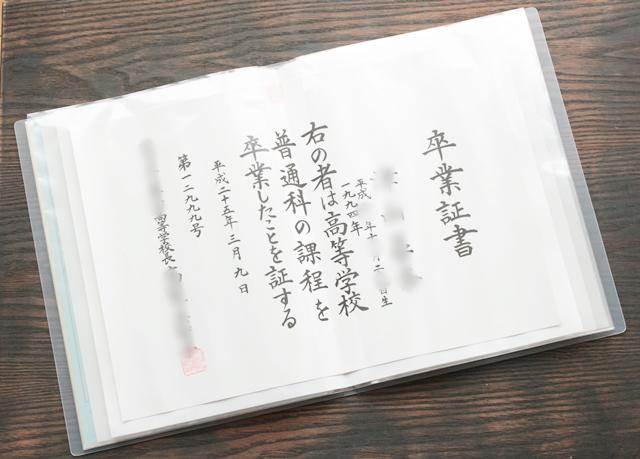 卒業証書
平成 年十 二 日生
一九九四年
右の者は高等学校
普通科の課程を
卒業したことを証する
平成二十五年三月九日
第一二九九九号
高等学校長